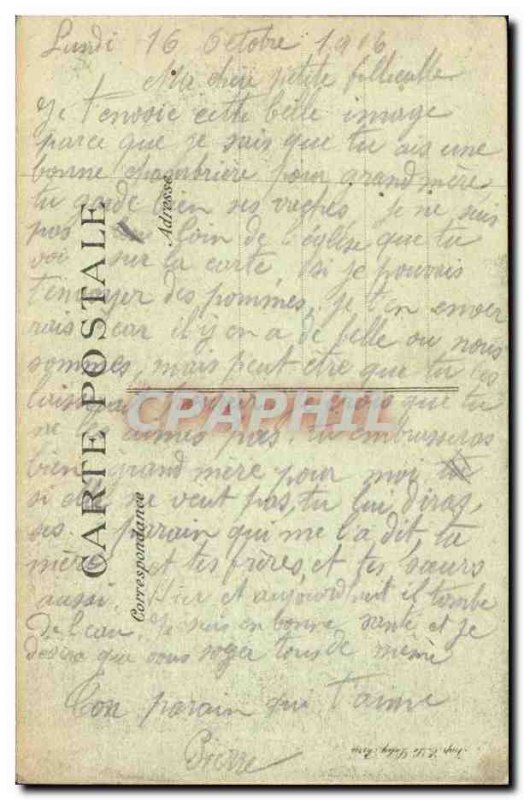 Lundi 16 Octobre 1916
Ma chère petite fillieulle
Je t'envoie cette belle image
parce que je sais que tu ais une
bonne chambrière pour grand mère,
tu garde bien ses vaches. Je ne suis
pas loin de l'église que tu
voi sur la carte si je pouvais
t'envoyer des pommes, je t'en enver
rais car il y en a de belle ou nous
sommes, mais peut être que tu les
que tu
ne les aimes pas, tu embrasseras
bien grand mère pour moi
si elle ne veut pas, tu lui diras,
parrain qui me l'a dit, ta
mère et tes frères, et tes sœurs
aussi. Hier et aujourdhuit il tombe
de l'eau, Je suis en bonne santé et je
désire que vous soyer tous de même
Ton parain qui t'aime
Pierre
CARTE POSTALE
Adresse
Correspondance
CPAPHIL